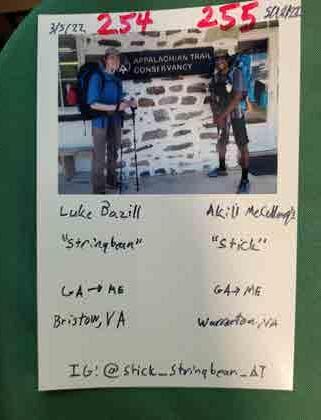 3/5/22 254 255
APPALACHIAN TRAIL
CONSERVANCY
Luke Bazill Akill
"Stringbean" "Stick"
GA → ME GA → ME
Bristow, VA Warrenton, VA
IG: @stick_stringbean_AT